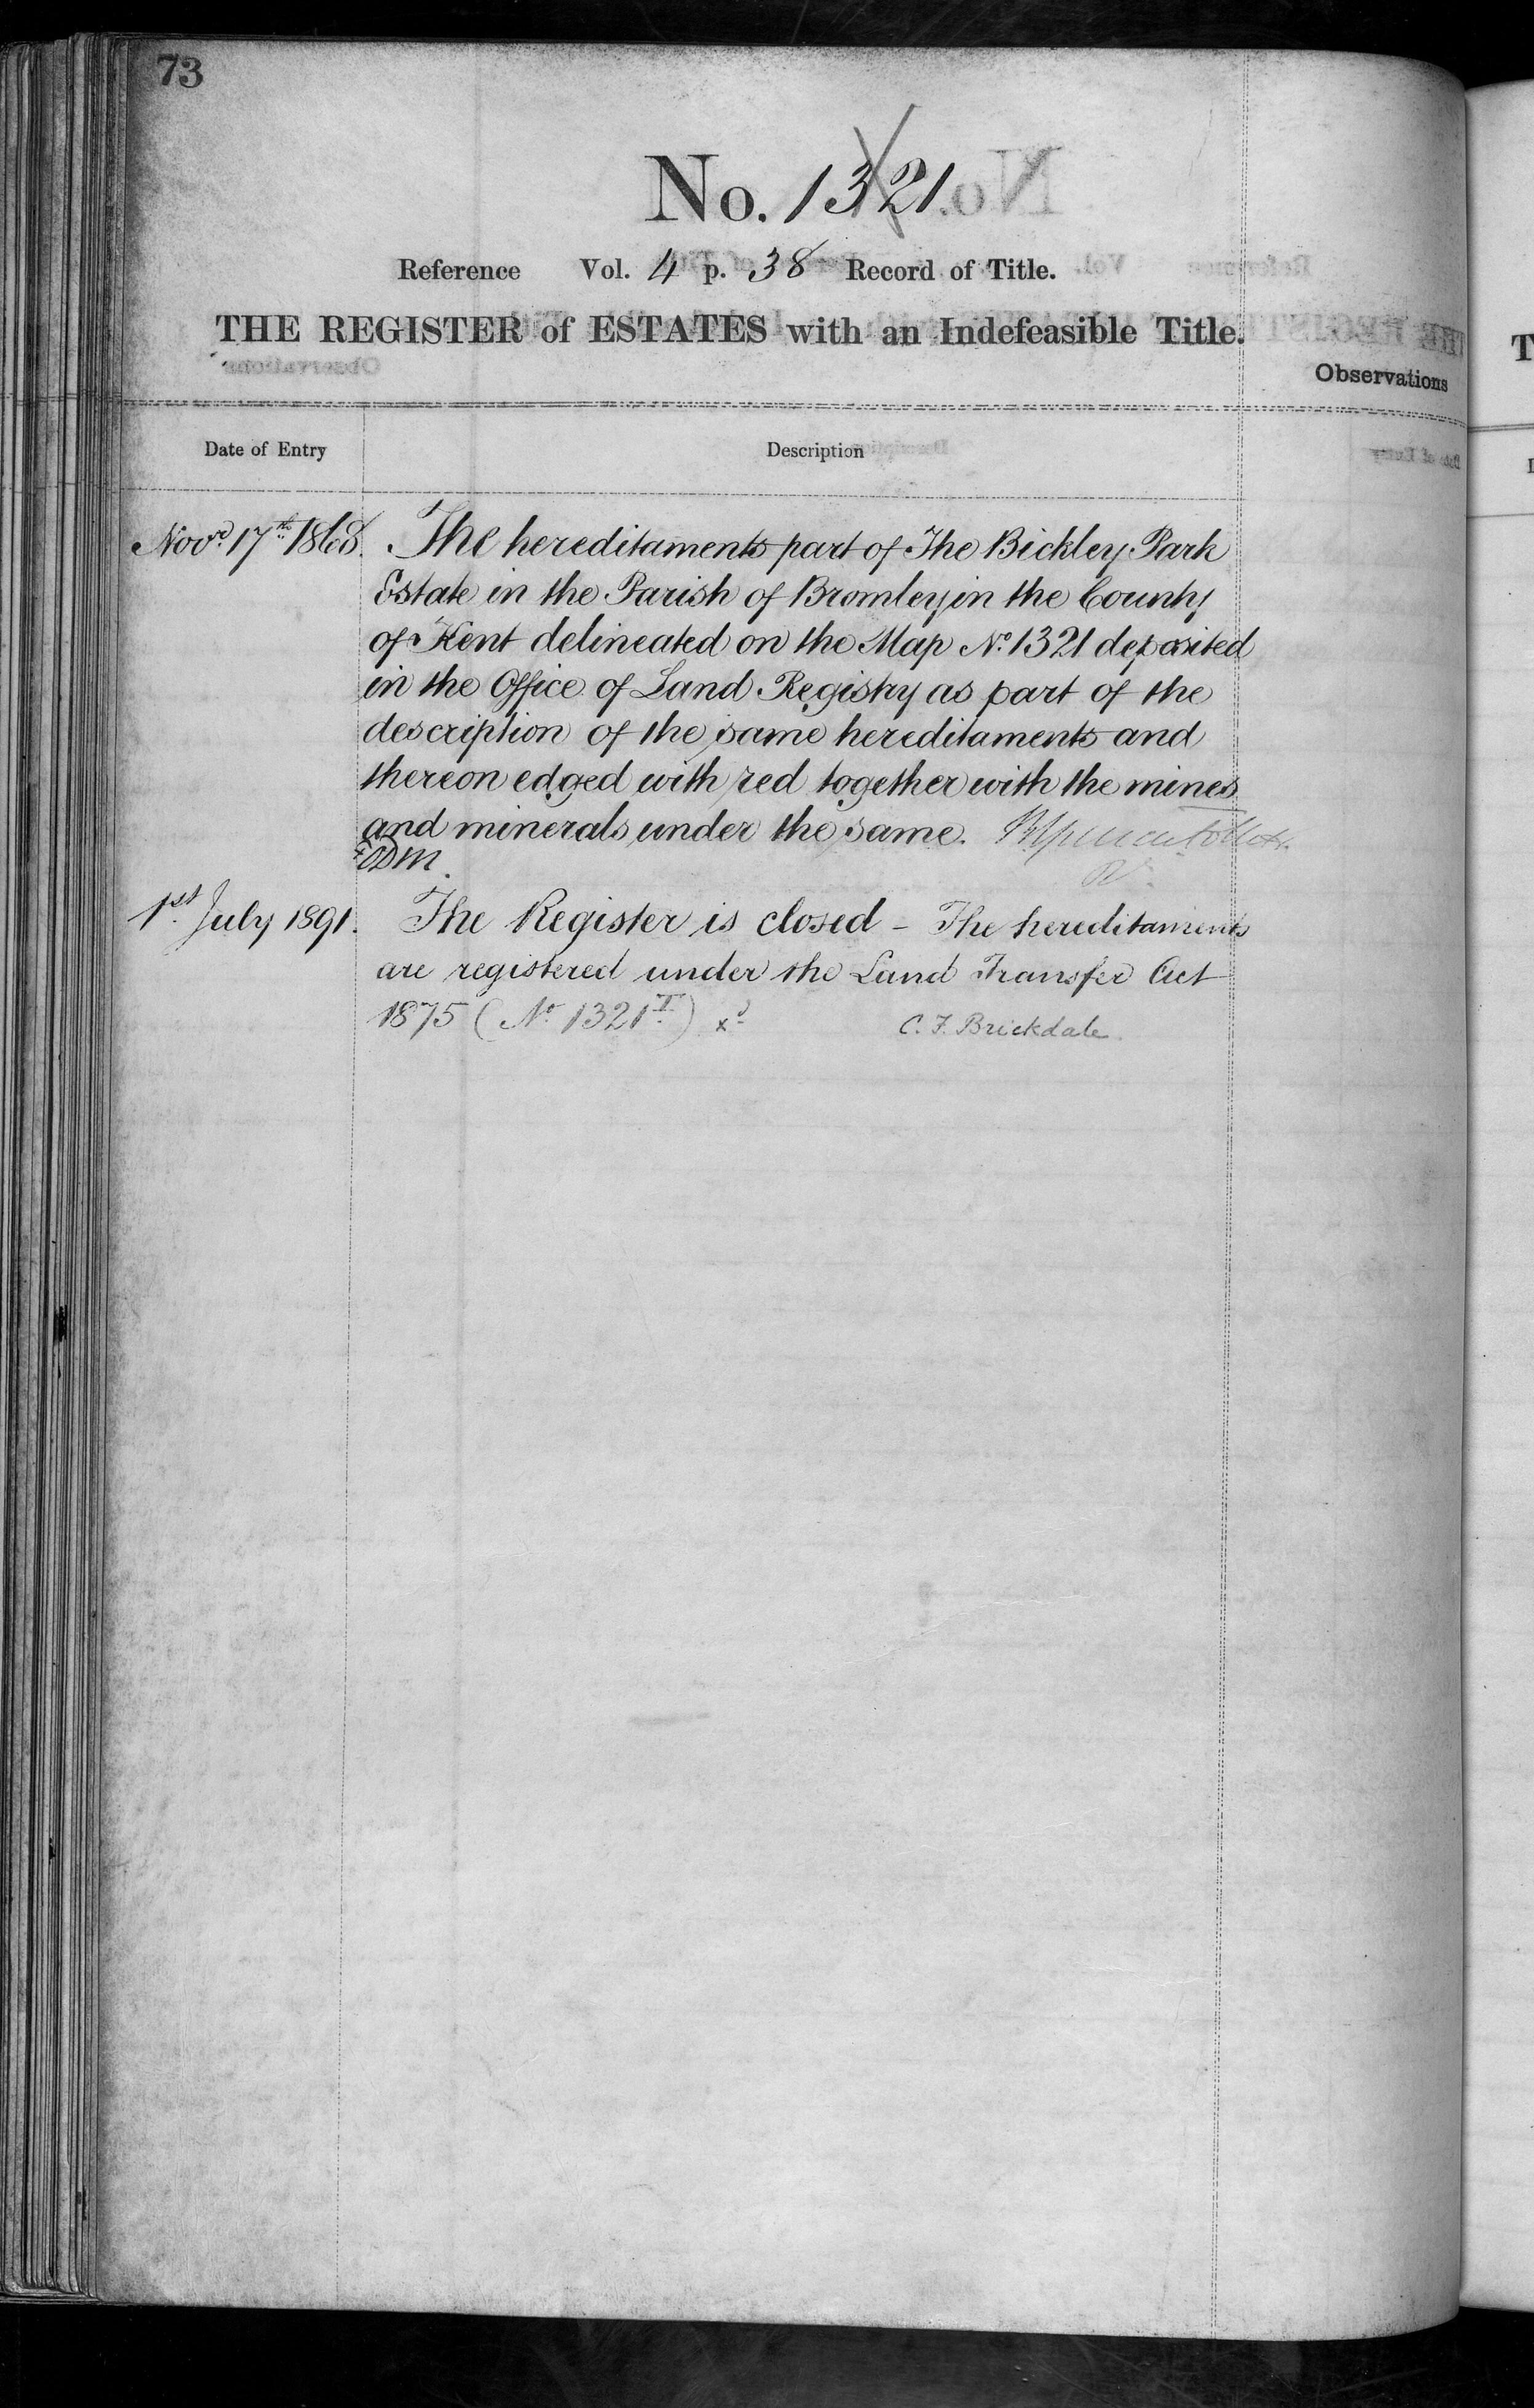 73
No. 1321
Reference Vol. 4 p. 38 Record of Title.
THE REGISTER of ESTATES with an Indefeasible Title.
Observations
Date of Entry Description
Novr. 17th 1868. The hereditaments part of The Bickley Park
Estate in the Parish of Bromley in the County
of Kent delineated on the Map No. 1321 deposited
in the Office of Land Registry as part of the
description of the same hereditaments and
thereon edged with red together with the mines
and minerals under the same.
1st July 1891. The Register is closed - The hereditaments
are registered under the Land Transfer Act
1875 (No. 1321 T) xd C. F. Brickdale